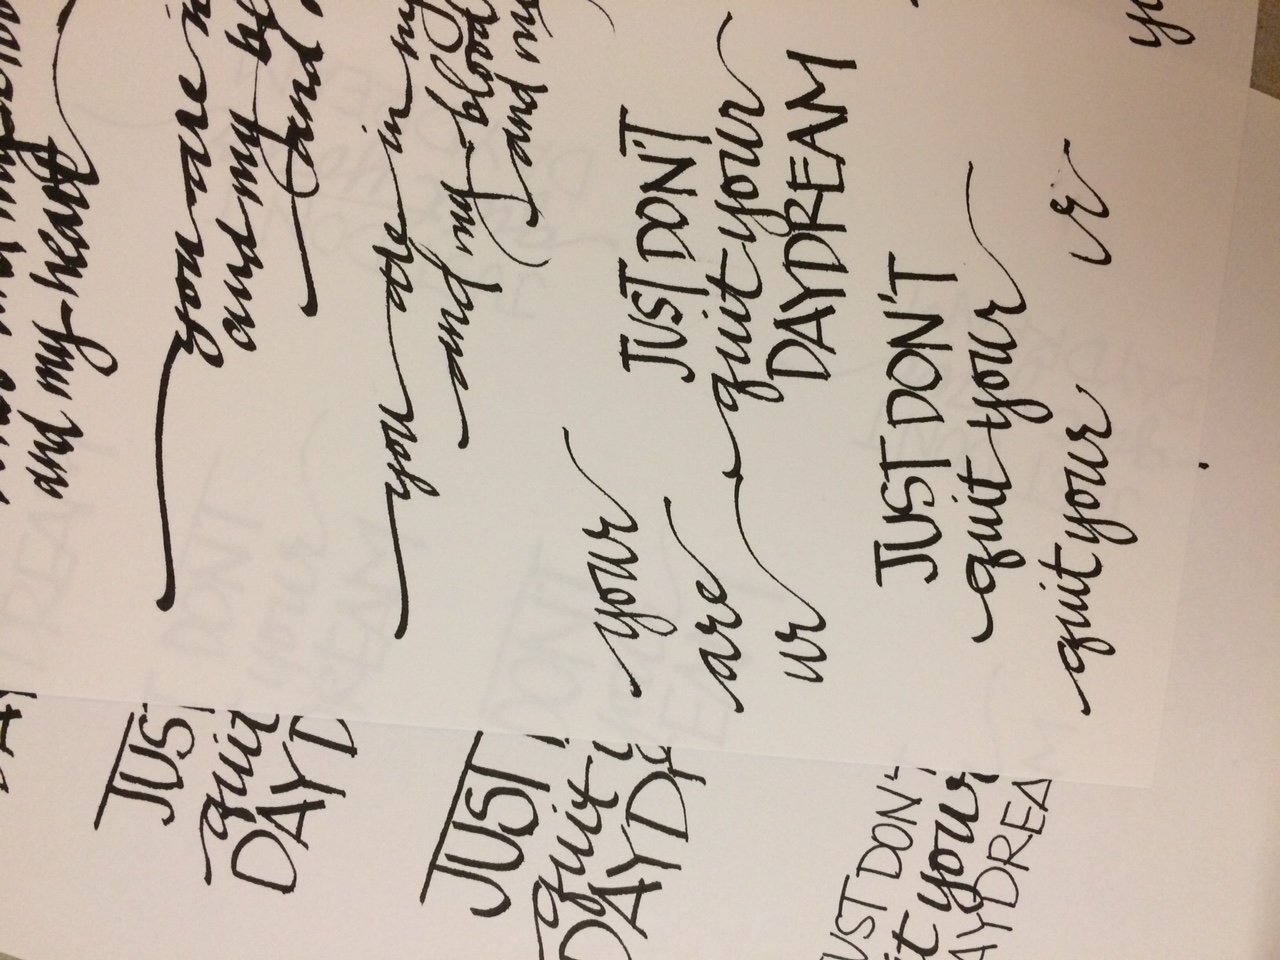 and my heart
you are
and my
and
you are in my
and my blood
and my
your
are
ur
JUST DON'T
quit your
DAYDREAM
JUST DON'T
quit your
quit your
ur
JUST
quit
DAYD
JUST
quit
DAYD
UST DON'
it your
AYDREA